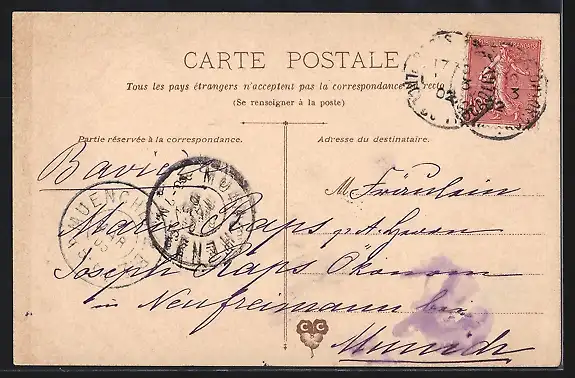 CARTE POSTALE
Tous les pays étrangers n'acceptent pas la correspondance au recto
(Se renseigner à la poste)
Partie réservée à la correspondance.
Adresse du destinataire.
Bavière
M Fräulein
Marie Raps p. A. Herrn
Joseph Raps Ökonom
in Neufreimann bei
Munich
MUENCHEN
MUENCHEN
C C